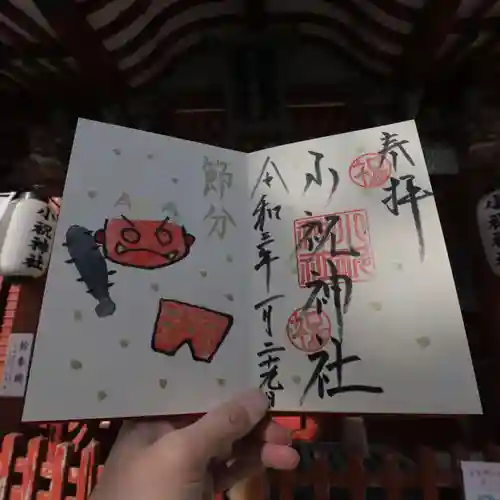 奉拝
小祝神社
令和三年一月二十九日
節分
小祝神社